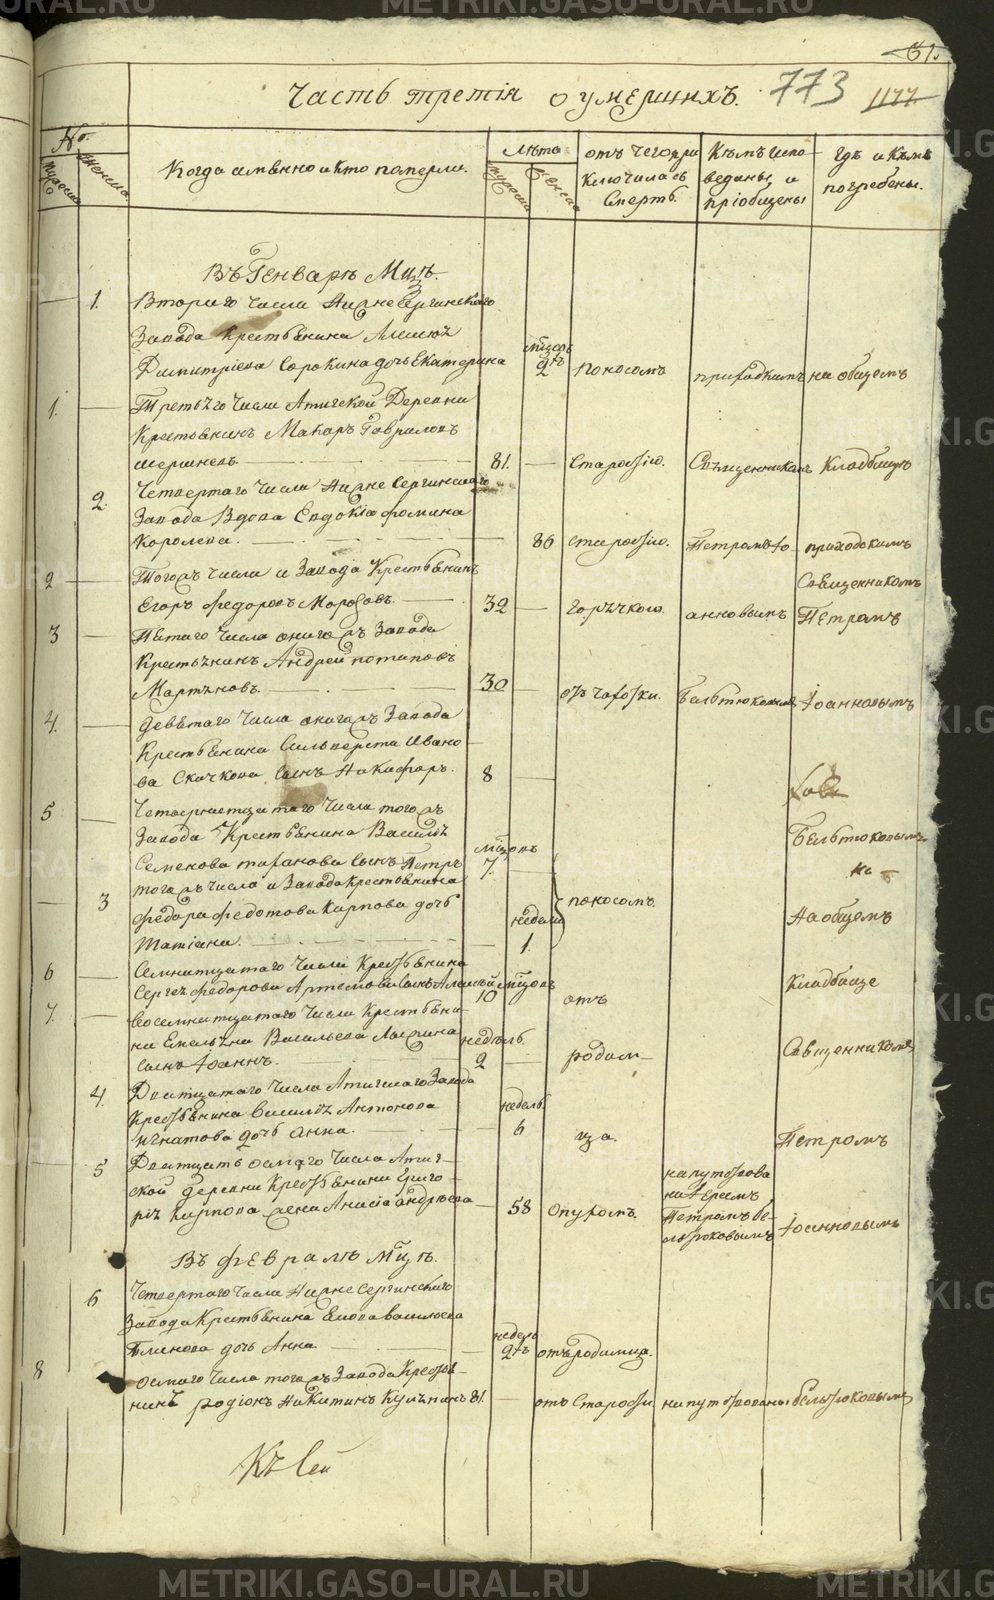 METRIKI.GASO-URAL.RU
61.
Часть третія о умершихъ. 773 1177
№
мужеска
женска
Когда имянно и кто померли.
Лѣта
мужеска
женска
отъ чего приключилась смерть.
Кѣмъ исповеданы и пріобщены
Где и кѣмъ погребены.
Въ Генварѣ Мцѣ.
1. Втораго числа Нижнесергинскаго
Завода Крестьянина Алексея
Димитріева Сорокина дочь Екатерина
мцовъ 2 поносомъ приходскимъ на общемъ
1. Третьяго числа Атигской Деревни
Крестьянинъ Макаръ Гавриловъ
Шершневъ. 81. старостію. Священникомъ Кладбище
2. Четвертаго числа Нижнесергинскаго
Завода Вдова Евдокіа Фомина
Королева. 86 старостію. Петромъ Іо- приходскимъ
Священникомъ
2 Тогожъ числа и Завода Крестьянинъ
Егоръ Федоровъ Морозовъ. 32 горячкою. анновымъ Петромъ
3 Пятаго числа оногожъ Завода
Крестьянинъ Андрей Потаповъ
Мартяновъ. 30 отъ чахотки. Бельтюковымъ Іоанновымъ
4. Девятаго числа оногожъ Завода
Крестьянина Сильверста Ивано
ва Скачкова сынъ Никифоръ. 8
5 Четвернатцатаго числа тогожъ
Завода Крестьянина Василія Бельтюковымъ
Семенова сынъ Петръ мцовъ 7. на
3 тогожъ числа и Завода Крестьянина
Федора Федотова Карпова дочь недели поносомъ. На общемъ
Татіана. 1.
6 Семнатцатаго числа Крестьянина
Сергея Федорова Артемова сынъ Алексей мцовъ 10 отъ Кладбище
7. Восемнатцатаго числа Крестьяни-
на Емельяна Васильева недель. Священникомъ
сынъ Іоаннъ. 2 родим-
4. Дватцатаго числа Атигскаго Завода
Крестьянина Василія Антонова недель
Игнатова дочь Анна. 6 ца. Петромъ
5 Дватцать осмаго числа Атиг-
ской деревни Крестьянина Григо-
рія Карпова жена Анисіа Андреева 58 опухомъ.
напутствована Іереемъ Петромъ Бельтюковымъ Іоанновымъ
Въ Февралѣ Мцѣ.
6 Четвертаго числа Нижнесергинскаго
Завода Крестьянина Васильева
Блинова дочь Анна недель 2 отъ родимца.
8 осмаго числа тогожъ Завода Крестья-
нинъ Родіонъ Никитинъ 81. отъ старости напутствованъ Бельтюковымъ
Къ сей
METRIKI.GASO-URAL.RU